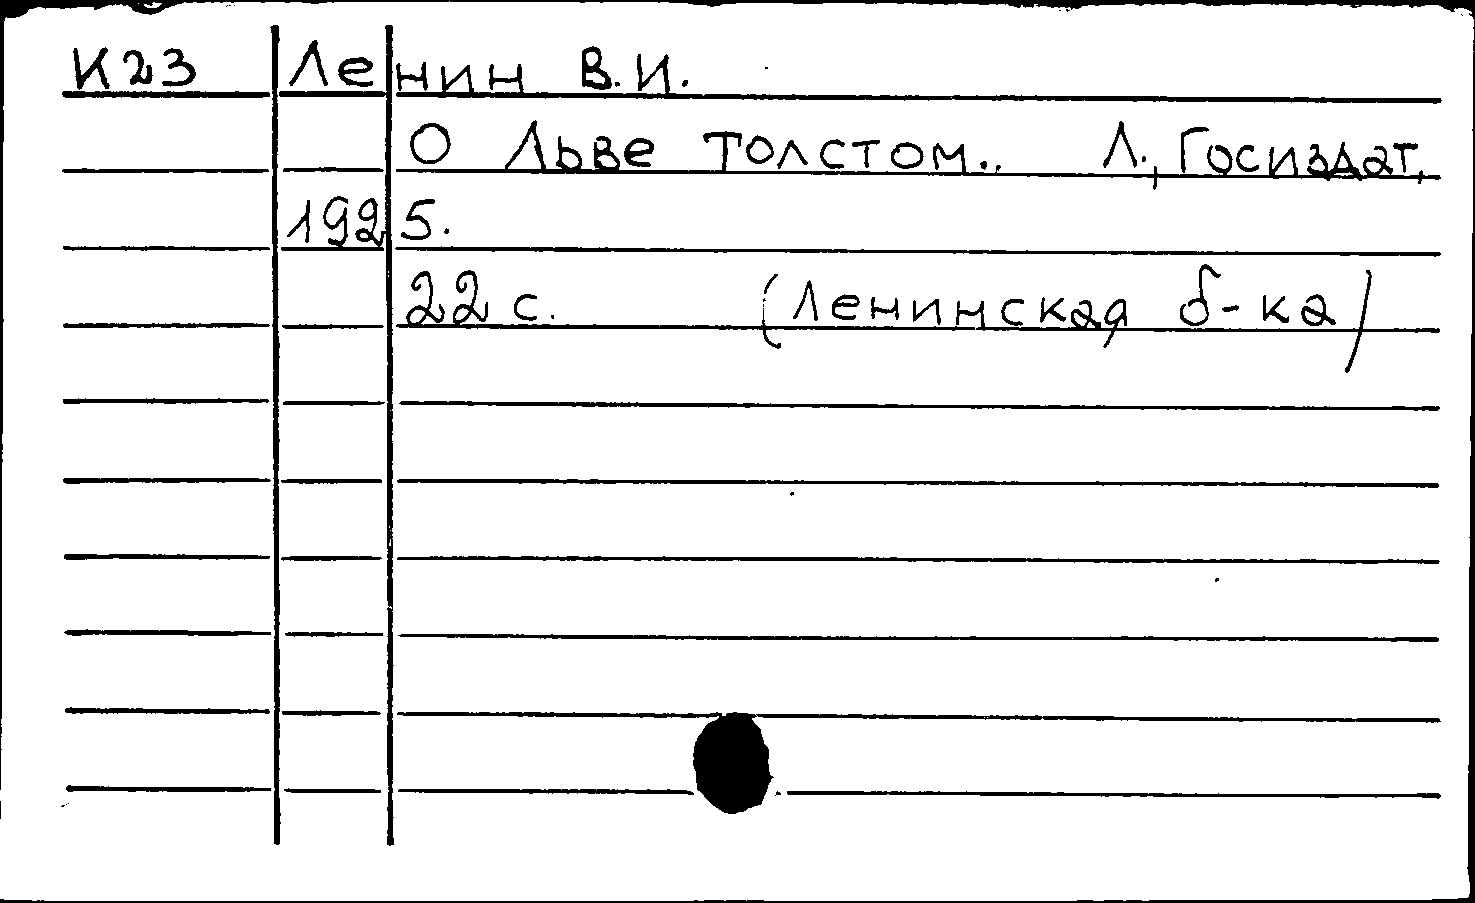 К23 Ленин В.И.
О Льве Толстом.. Л., Госиздат,
1925.
22 с. (Ленинская б-ка)